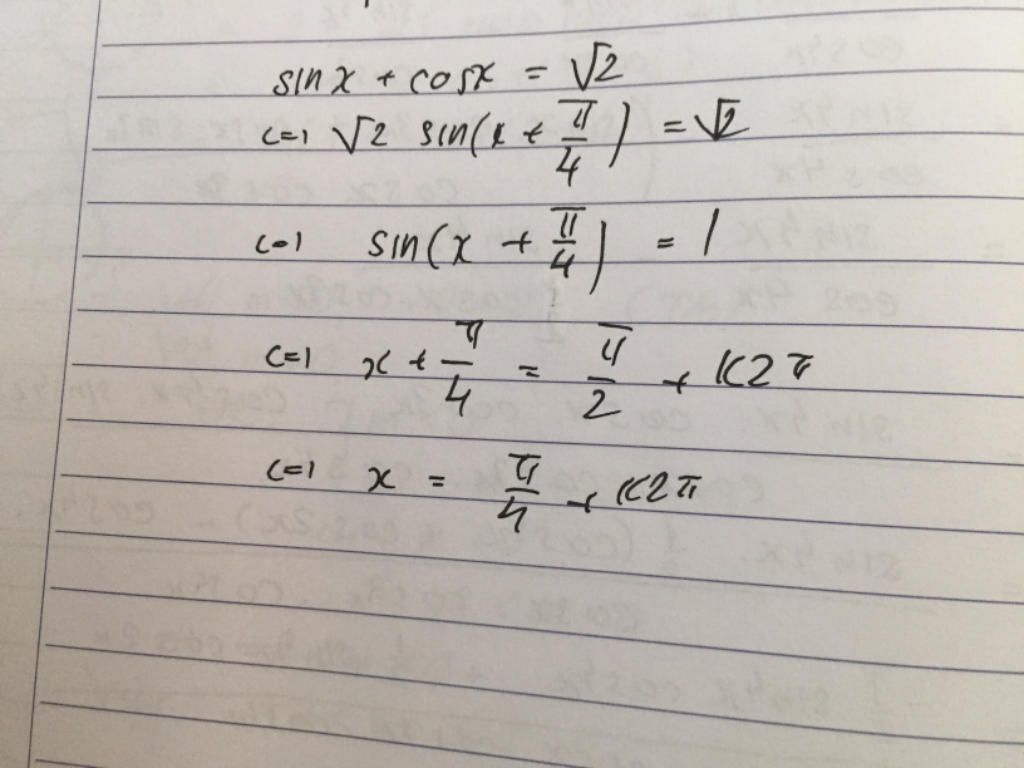 sinx + cosx = √2
<=> √2 sin(x + π/4) = √2
<=> sin(x + π/4) = 1
<=> x + π/4 = π/2 + K2π
<=> x = π/4 + K2π